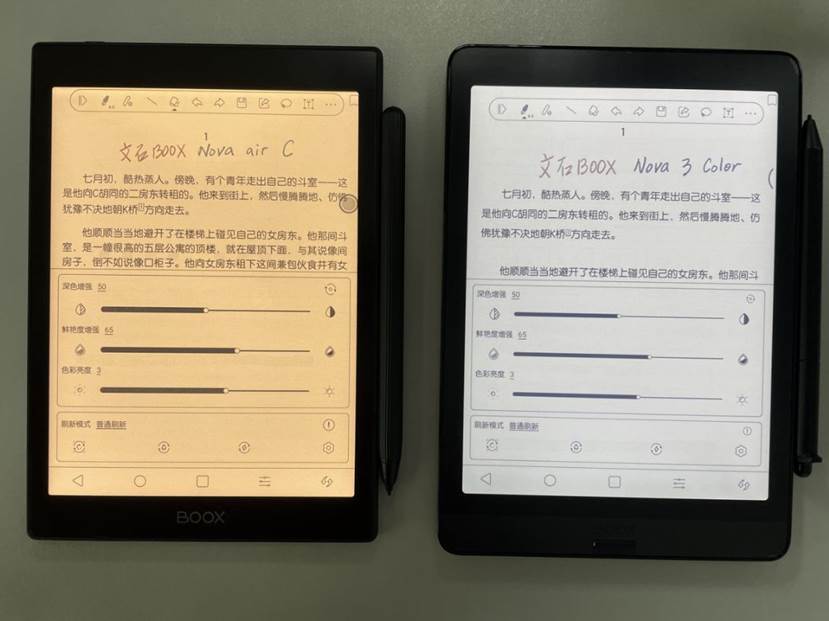 1
文石BOOX Nova air C
七月初，酷热蒸人。傍晚，有个青年走出自己的斗室——这
是他向C胡同的二房东转租的。他来到街上，然后慢腾腾地、仿佛
犹豫不决地朝K桥①方向走去。
他顺顺当当地避开了在楼梯上碰见自己的女房东。他那间斗
室，是一幢很高的五层公寓的顶楼，就在屋顶下面，与其说像间
房子，倒不如说像口柜子。他向女房东租下这间兼包伙食并有女
深色增强 50
鲜艳度增强 65
色彩亮度 3
刷新模式 普通刷新
BOOX
1
文石BOOX Nova 3 Color
七月初，酷热蒸人。傍晚，有个青年走出自己的斗室——这
是他向C胡同的二房东转租的。他来到街上，然后慢腾腾地、仿
佛犹豫不决地朝K桥①方向走去。
他顺顺当当地避开了在楼梯上碰见自己的女房东。他那间斗
深色增强 50
鲜艳度增强 65
色彩亮度 3
刷新模式 普通刷新